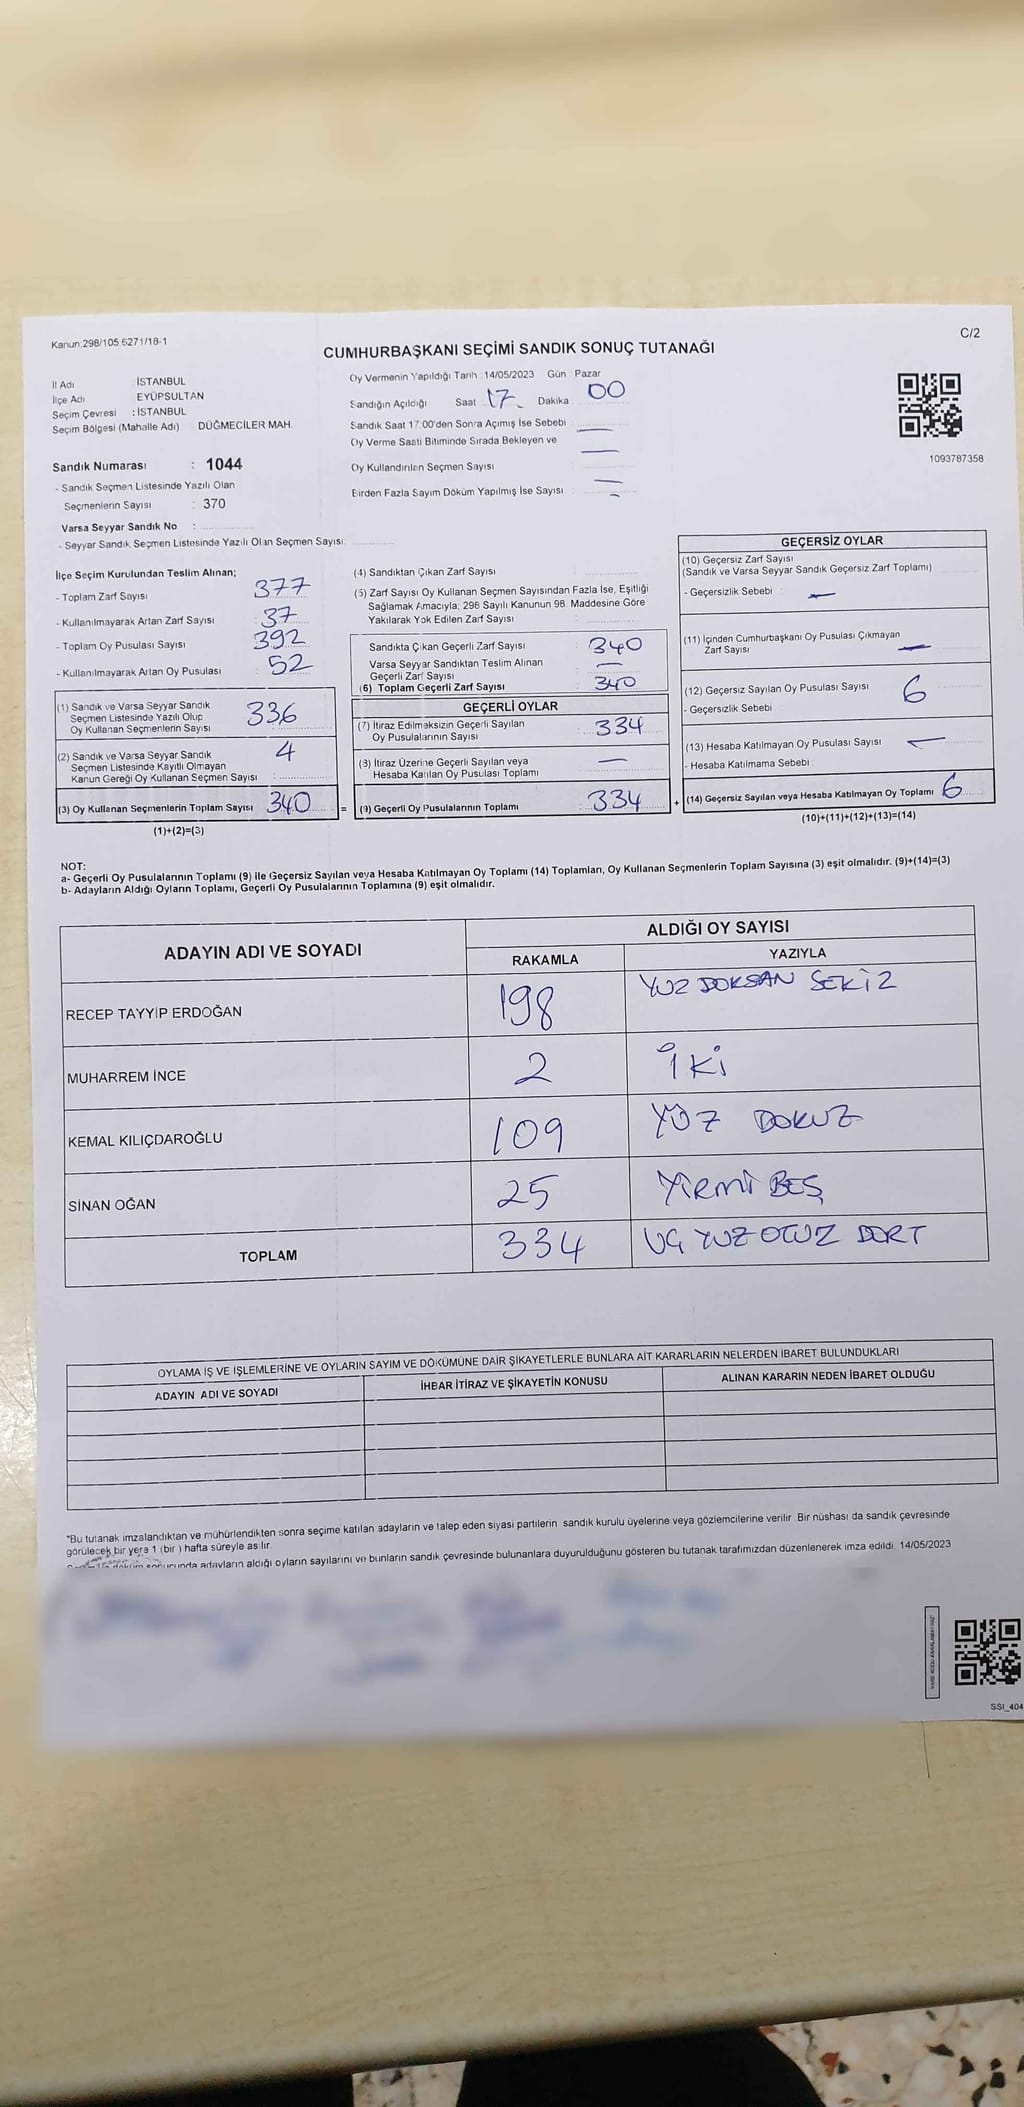 Kanun:298/105 6271/18-1
C/2
CUMHURBAŞKANI SEÇİMİ SANDIK SONUÇ TUTANAĞI
İl Adı : İSTANBUL
İlçe Adı EYÜPSULTAN
Seçim Çevresi : İSTANBUL
Seçim Bölgesi (Mahalle Adı) DÜĞMECİLER MAH.
Oy Vermenin Yapıldığı Tarih 14/05/2023 Gün Pazar
Sandığın Açıldığı Saat 17. Dakika 00
Sandık Saat 17:00'den Sonra Açılmış İse Sebebi
Oy Verme Saati Bitiminde Sırada Bekleyen ve
Oy Kullandırılan Seçmen Sayısı
Birden Fazla Sayım Döküm Yapılmış İse Sayısı :
1093787358
Sandık Numarası : 1044
- Sandık Seçmen Listesinde Yazılı Olan
Seçmenlerin Sayısı : 370
Varsa Seyyar Sandık No :
- Seyyar Sandık Seçmen Listesinde Yazılı Olan Seçmen Sayısı
İlçe Seçim Kurulundan Teslim Alınan;
- Toplam Zarf Sayısı 377
- Kullanılmayarak Artan Zarf Sayısı 37
- Toplam Oy Pusulası Sayısı 392
- Kullanılmayarak Artan Oy Pusulası 52
(1) Sandık ve Varsa Seyyar Sandık
Seçmen Listesinde Yazılı Olup
Oy Kullanan Seçmenlerin Sayısı 336
(2) Sandık ve Varsa Seyyar Sandık
Seçmen Listesinde Kayıtlı Olmayan
Kanun Gereği Oy Kullanan Seçmen Sayısı : 4
(3) Oy Kullanan Seçmenlerin Toplam Sayısı 340
(1)+(2)=(3)
=
(4) Sandıktan Çıkan Zarf Sayısı
(5) Zarf Sayısı Oy Kullanan Seçmen Sayısından Fazla İse, Eşitliği
Sağlamak Amacıyla; 298 Sayılı Kanunun 98. Maddesine Göre
Yakılarak Yok Edilen Zarf Sayısı
Sandıkta Çıkan Geçerli Zarf Sayısı 340
Varsa Seyyar Sandıktan Teslim Alınan
Geçerli Zarf Sayısı —
(6) Toplam Geçerli Zarf Sayısı 340
GEÇERLİ OYLAR
(7) İtiraz Edilmeksizin Geçerli Sayılan
Oy Pusulalarının Sayısı 334
(8) İtiraz Üzerine Geçerli Sayılan veya
Hesaba Katılan Oy Pusulası Toplamı —
(9) Geçerli Oy Pusulalarının Toplamı 334
+
GEÇERSİZ OYLAR
(10) Geçersiz Zarf Sayısı
(Sandık ve Varsa Seyyar Sandık Geçersiz Zarf Toplamı)
- Geçersizlik Sebebi : —
(11) İçinden Cumhurbaşkanı Oy Pusulası Çıkmayan
Zarf Sayısı —
(12) Geçersiz Sayılan Oy Pusulası Sayısı 6
- Geçersizlik Sebebi
(13) Hesaba Katılmayan Oy Pusulası Sayısı —
- Hesaba Katılmama Sebebi
(14) Geçersiz Sayılan veya Hesaba Katılmayan Oy Toplamı 6
(10)+(11)+(12)+(13)=(14)
NOT:
a- Geçerli Oy Pusulalarının Toplamı (9) İle Geçersiz Sayılan veya Hesaba Katılmayan Oy Toplamı (14) Toplamları, Oy Kullanan Seçmenlerin Toplam Sayısına (3) eşit olmalıdır. (9)+(14)=(3)
b- Adayların Aldığı Oyların Toplamı, Geçerli Oy Pusulalarının Toplamına (9) eşit olmalıdır.
ADAYIN ADI VE SOYADI
ALDIĞI OY SAYISI
RAKAMLA YAZIYLA
RECEP TAYYİP ERDOĞAN 198 YUZ DOKSAN SEKİZ
MUHARREM İNCE 2 İKİ
KEMAL KILIÇDAROĞLU 109 YÜZ DOKUZ
SİNAN OĞAN 25 YİRMİ BEŞ
TOPLAM 334 UÇ YUZ OTUZ DÖRT
OYLAMA İŞ VE İŞLEMLERİNE VE OYLARIN SAYIM VE DÖKÜMÜNE DAİR ŞİKAYETLERLE BUNLARA AİT KARARLARIN NELERDEN İBARET BULUNDUKLARI
ADAYIN ADI VE SOYADI İHBAR İTİRAZ VE ŞİKAYETİN KONUSU ALINAN KARARIN NEDEN İBARET OLDUĞU
*Bu tutanak imzalandıktan ve mühürlendikten sonra seçime katılan adayların ve talep eden siyasi partilerin sandık kurulu üyelerine veya gözlemcilerine verilir. Bir nüshası da sandık çevresinde
görülecek bir yere 1 (bir ) hafta süreyle asılır.
adayların aldığı oyların sayılarını ve bunların sandık çevresinde bulunanlara duyurulduğunu gösteren bu tutanak tarafımızdan düzenlenerek imza edildi. 14/05/2023
SSI_404